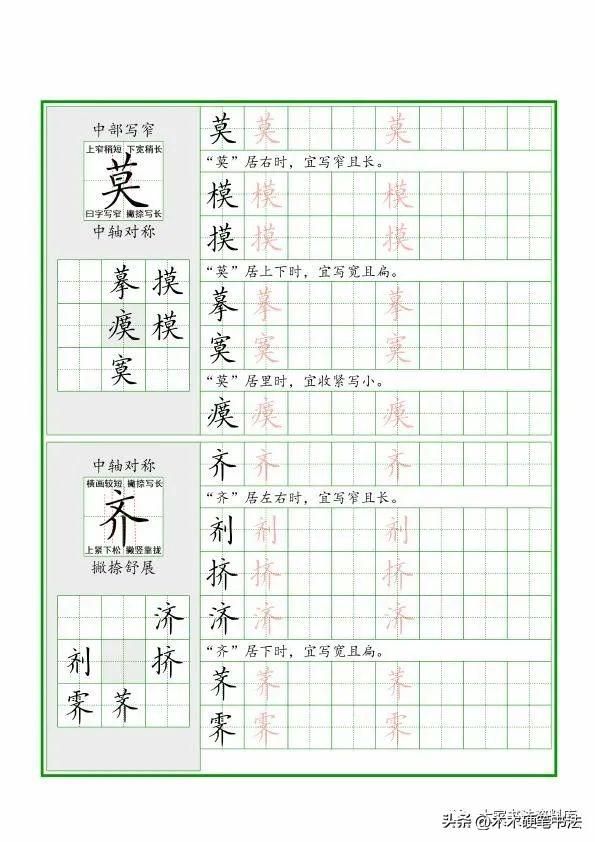 中部写窄
上窄稍短 下宽稍长
莫
曰字写窄 撇捺写长
中轴对称
摹 摸
瘼 模
寞
莫 莫 莫
“莫”居右时，宜写窄且长。
模 模 模
摸 摸 摸
“莫”居上下时，宜写宽且扁。
摹 摹 摹
寞 寞 寞
“莫”居里时，宜收紧写小。
瘼 瘼 瘼
中轴对称
横画较短 撇捺写长
齐
上紧下松 撇竖靠拢
撇捺舒展
济
剂 挤
霁 荠
齐 齐 齐
“齐”居左右时，宜写窄且长。
剂 剂 剂
挤 挤 挤
济 济 济
“齐”居下时，宜写宽且扁。
荠 荠 荠
霁 霁 霁
头条 @木木硬笔书法